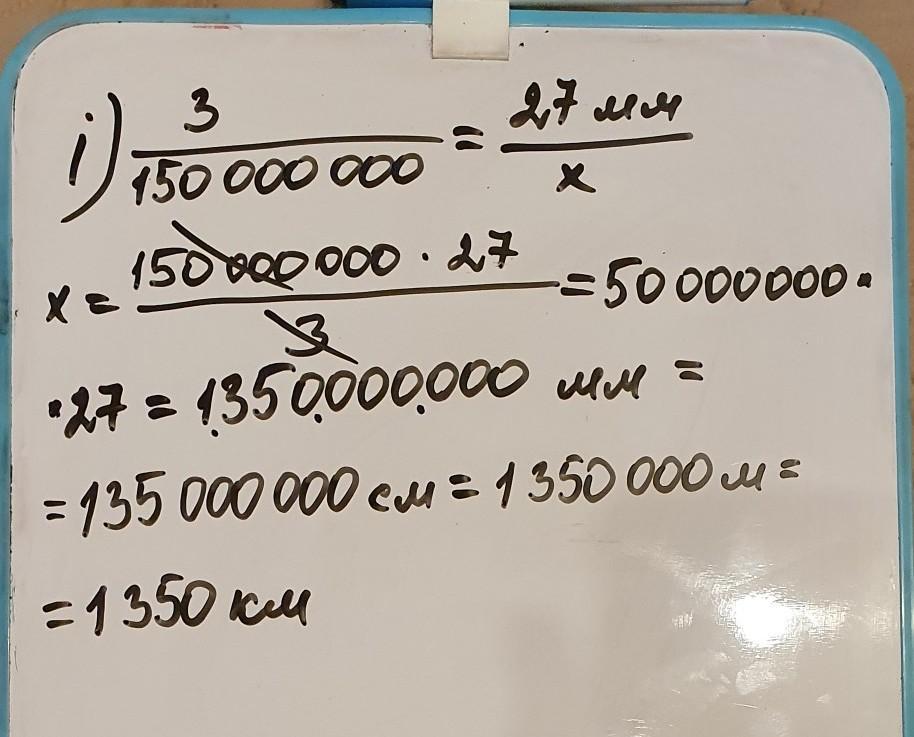 i) 3/150 000 000 = 27 мм/x
x = 150 000 000 · 27/3 = 50 000 000 ·
· 27 = 1.350.000.000 мм =
= 135 000 000 см = 1 350 000 м =
= 1 350 км